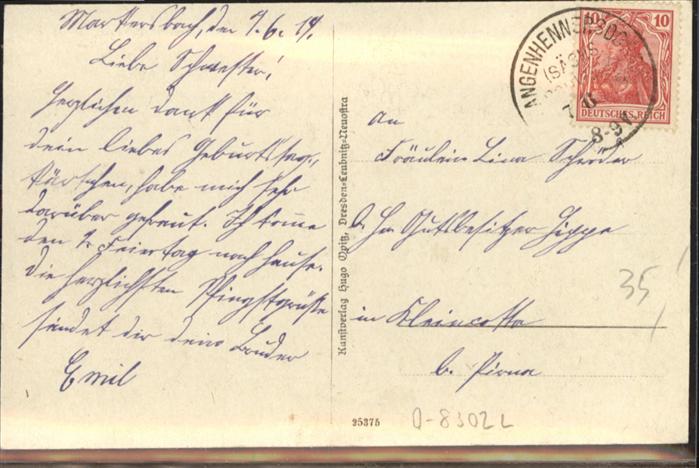 Markersbach, den 7.6.14.
Liebe Schwester!
Herzlichen Dank für
dein liebes Geburtstags-
kärtchen, habe mich sehr
darüber gefreut. Ich komme
den 1. Feiertag nach Hause.
die herzlichsten Pfingstgrüße
sendet dir dein Bruder
Emil
Kunstverlag Hugo Opitz, Dresden-Leubnitz-Neuostra
25375
10 10
DEUTSCHES REICH
LANGENHENNERSDORF
(SACHS.
8-9V
An
Fräulein Lina Schröder
b. Hr. Gutsbesitzer Hippe
in Kleincotta
b. Pirna
35
O-8302L